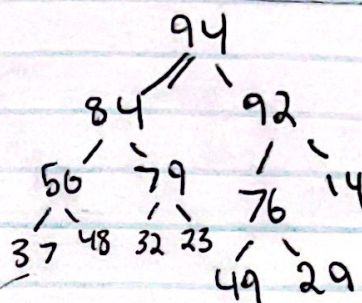 94
84 92
56 79 76 14
37 48 32 23 49 29